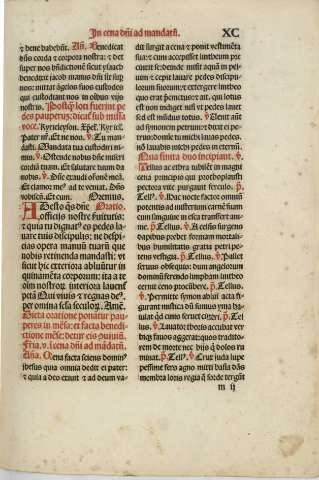 In cena dñi ad mandatũ. XC
⁊ bene habebũt. Añ. Benedicat
dñs corda ⁊ corpora nostra: ⁊ det
super nos bñdictionẽ sicut ysaac
benedixit jacob manus dñi sit sup
nos: mittat ãgelos suos custodes
qui custodiant nos in oibus vijs
nostris. Postq̃ loti fuerint pe
des pauperuz: dicat sub missa
voce. Kyrieleyson. Xp̃el. Kyriel.
Pater nr̃. Et ne nos. ℣. Tu man
dasti. Mandata tua custodiri ni-
mis. ℣. Ostende nobis dñe miseri
cordiã tuam. Et salutare tuum da
nobis. ℣. Dñe exaudi orõnẽ meã.
Et clamor meꝰ ad te veniat. Dñs
vobiscũ. Et cum Oremus.
ADesto q̃s dñe Oratio.
officijs nostre ỹuitutis:
⁊ quia tu dignatꝰ es pedes la-
uare tuis discipulis: ne despici-
as opera manuũ tuarũ que
nobis retinenda mandasti: vt
sicut hic exteriora abluũtur in
quinamẽta corporum: ita a te
oim nostroꝝ interiora lauenẽ
petã Qui viuis ⁊ regnas deꝰ.
per omnia secla seculoꝝ. Amẽ.
Dicta oratione ponãtur pau-
peres in mẽsa: et facta benedi-
ctione mẽse: detur eis ỹuiciũ.
Feria. v. i cena dñi ad mãdatũ.
Aña. Cena facta sciens dominꝰ
iesus quia omnia dedit ei pater:
⁊ quia a deo exiuit ⁊ ad deum va-
dit surgit a cena ⁊ ponit vestimẽta
sua: ⁊ cum accepisset lintheum pre
cinxit se: deinde misit aquã in pel-
uim: ⁊ cepit lauare pedes discipu-
lorum suorum: ⁊ extergebat. qui lo
tus est non indiget nisi vt pedes lauet
sed est mũdus totus. Venit
ad symonem petrum: ⁊ dixit ei pe-
trus: domine tu mihi lauas pedes.
nõ lauabis mihi pedes in eternũ.
Qua finita duo incipiant. ℣.
TEllus ac ethra iubilent in magni
cena principis qui prothoplausti
pectora vite purgauit ferculo. ℟.
Tellus. ℣. Hac nocte factor omniũ
potentis ad misterium carnem suam
cum sanguine in esca transfert ani-
me. ℟. Tellus. ℣. A celsis surgens
dapibus prebens formam mortali-
bus humilitatis gratia petri pe-
tens vestigia. ℟. Tellus. ℣. Pallet
seruus obsequio: dum angelorum
dominũ ferendo limpham lintheo
cernit ceno procũbere. ℟. Tellus.
℣. Permitte symon ablui acta fi-
gurant mistica dũ summus yma ba-
iulat qd cinis seruet cineri. ℟. Tellus.
℣. Lauator thoris accubat ver-
biqꝫ fauos aggerat: quos inter ho-
stem denotat necis quo dolos ru-
minat. ℟. Tell9. ℣. Crux juda lupe
pessime fers agno miti basia dãs
membra loris regia q̃ sorde tergunt
m ij